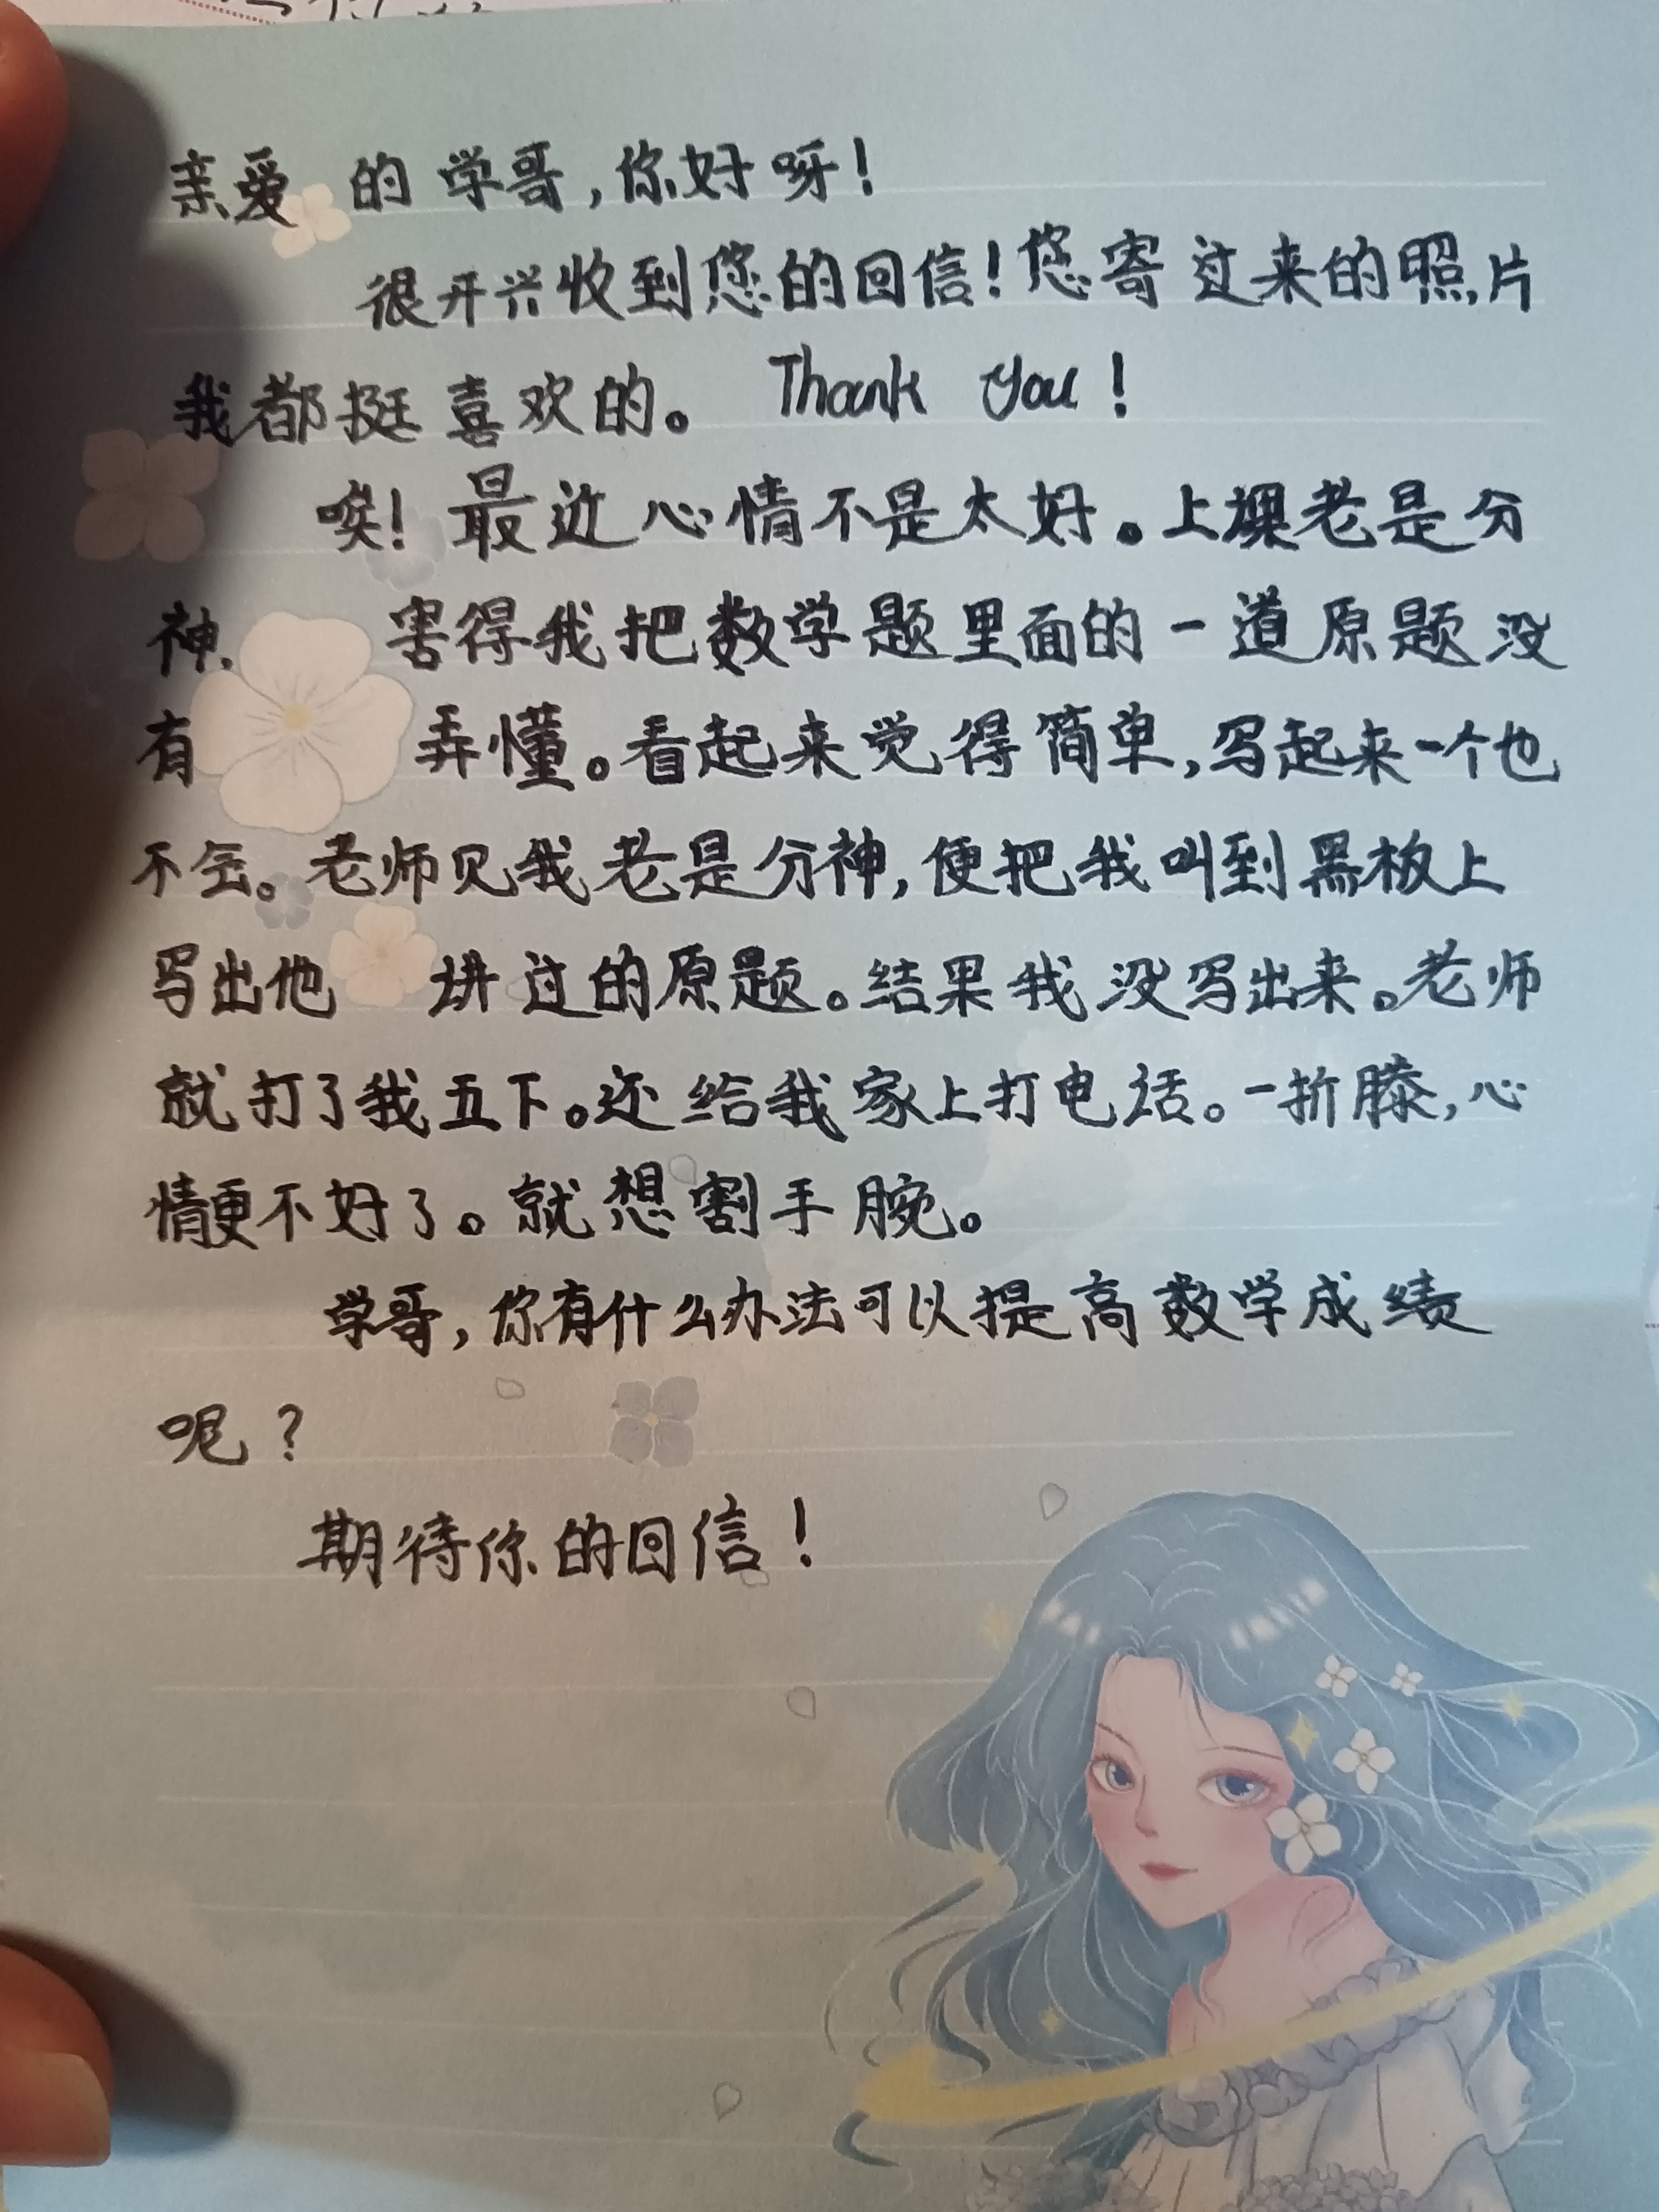 亲爱的学哥,你好呀!
很开兴收到您的回信!您寄过来的照片
我都挺喜欢的。Thank You!
唉!最近心情不是太好。上课老是分
神,害得我把数学题里面的一道原题没
有弄懂。看起来觉得简单,写起来一个也
不会。老师见我老是分神,便把我叫到黑板上
写出他讲过的原题。结果我没写出来。老师
就打了我五下。还给我家上打电话。一折膝,心
情更不好了。就想割手腕。
学哥,你有什么办法可以提高数学成绩
呢?
期待你的回信!